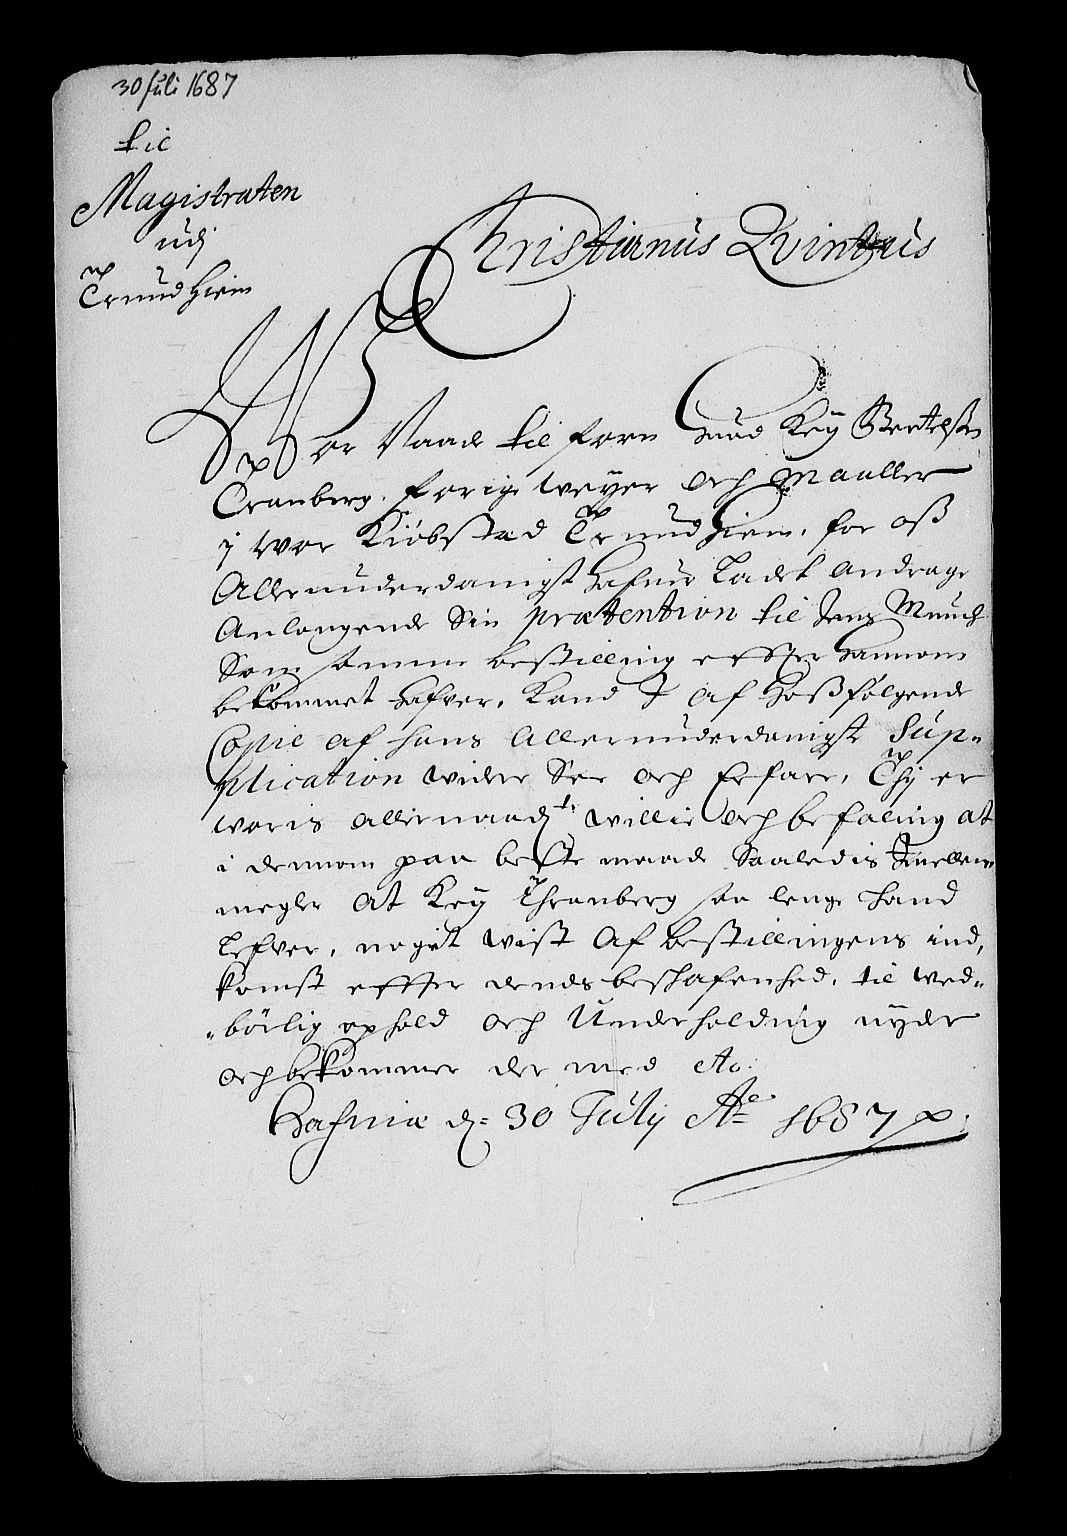 30 Juli 1687
til
Magistraten
udj
Trundhiem
Christianus Qvintus
Vor Naade til forn Hvad Key Bertelsen
Tranberg, forige weyer och Maaller
i wor Kiøbstæd Trundhiem, for oß
Allerunderdanigst hafuer ladet andrage
Anlangende Sin prætention til Jens Munch
Som samme bestilling effter hannom
bekommet hafver, Kand I af hoßfølgende
Copie af hans Allerunderdanigste Sup-
plication widere See och Erfare, Thj er
woris allernaadste willie och befaling at
i dennom paa beste maade Saaledis Imellem
megler at Key Thranberg saa lenge hand
Lefver, noget wist Af bestillingens ind,
komst effter dends beskafenhed, til wed-
børlig ophold och Underholding nyder
och bekommer der med etc:
Hafniæ d: 30 Julij Ao 1687